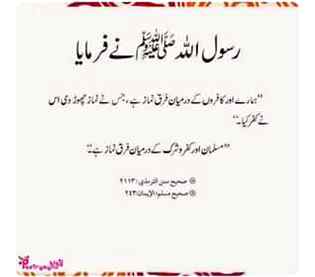 رسول اللہ ﷺ نے فرمایا
”ہمارے اور کافروں کے درمیان فرق نماز ہے، جس نے نماز چھوڑ دی اس
نے کفر کیا۔“
”مسلمان اور کفر و شرک کے درمیان فرق نماز ہے۔“
صحیح سنن الترمذی: ٢١١٣
صحیح مسلم: الایمان: ٢٤٣